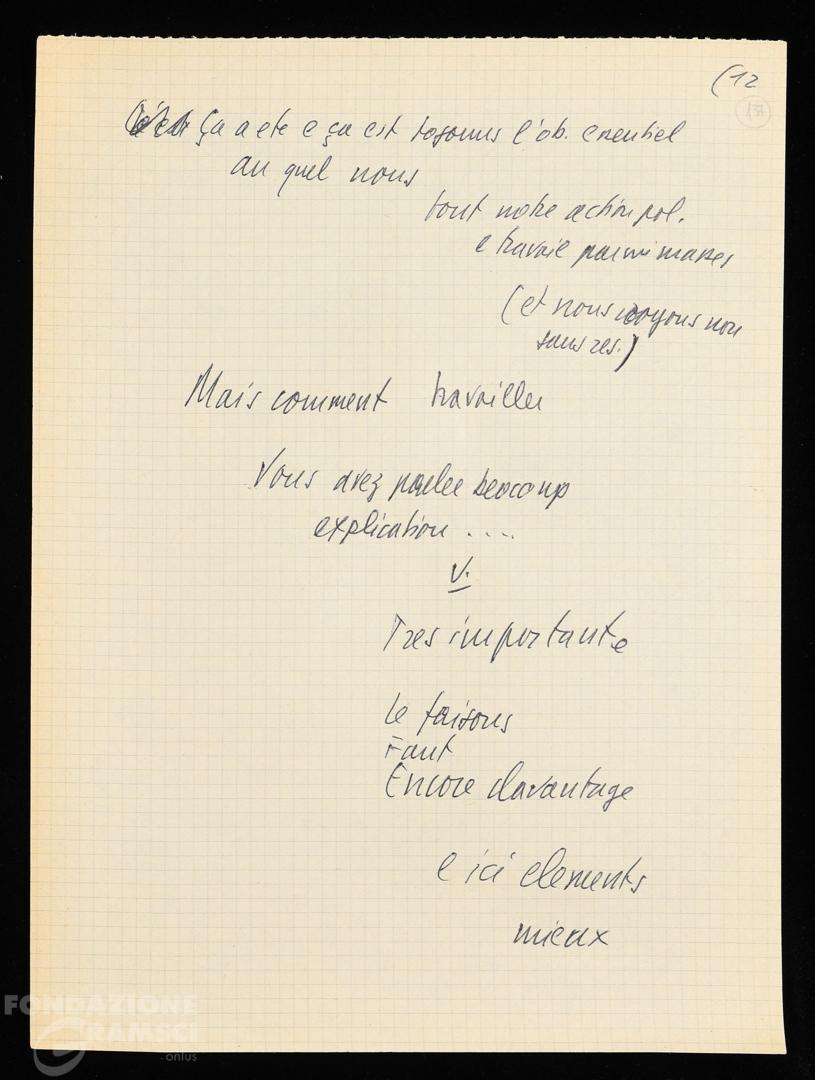 (12
137
Ça a ete e ça est tojours l'ob. essentiel
au quel nous
tout notre action pol.
e travail parmi masses
(et nous croyons non
sans res.)
Mais comment travailler
Vous avez parlee beocoup
explication ....
V.
Tres importante
Le faisons
Faut
Encore davantage
e ici elements
mieux
FONDAZIONE
GRAMSCI
onlus